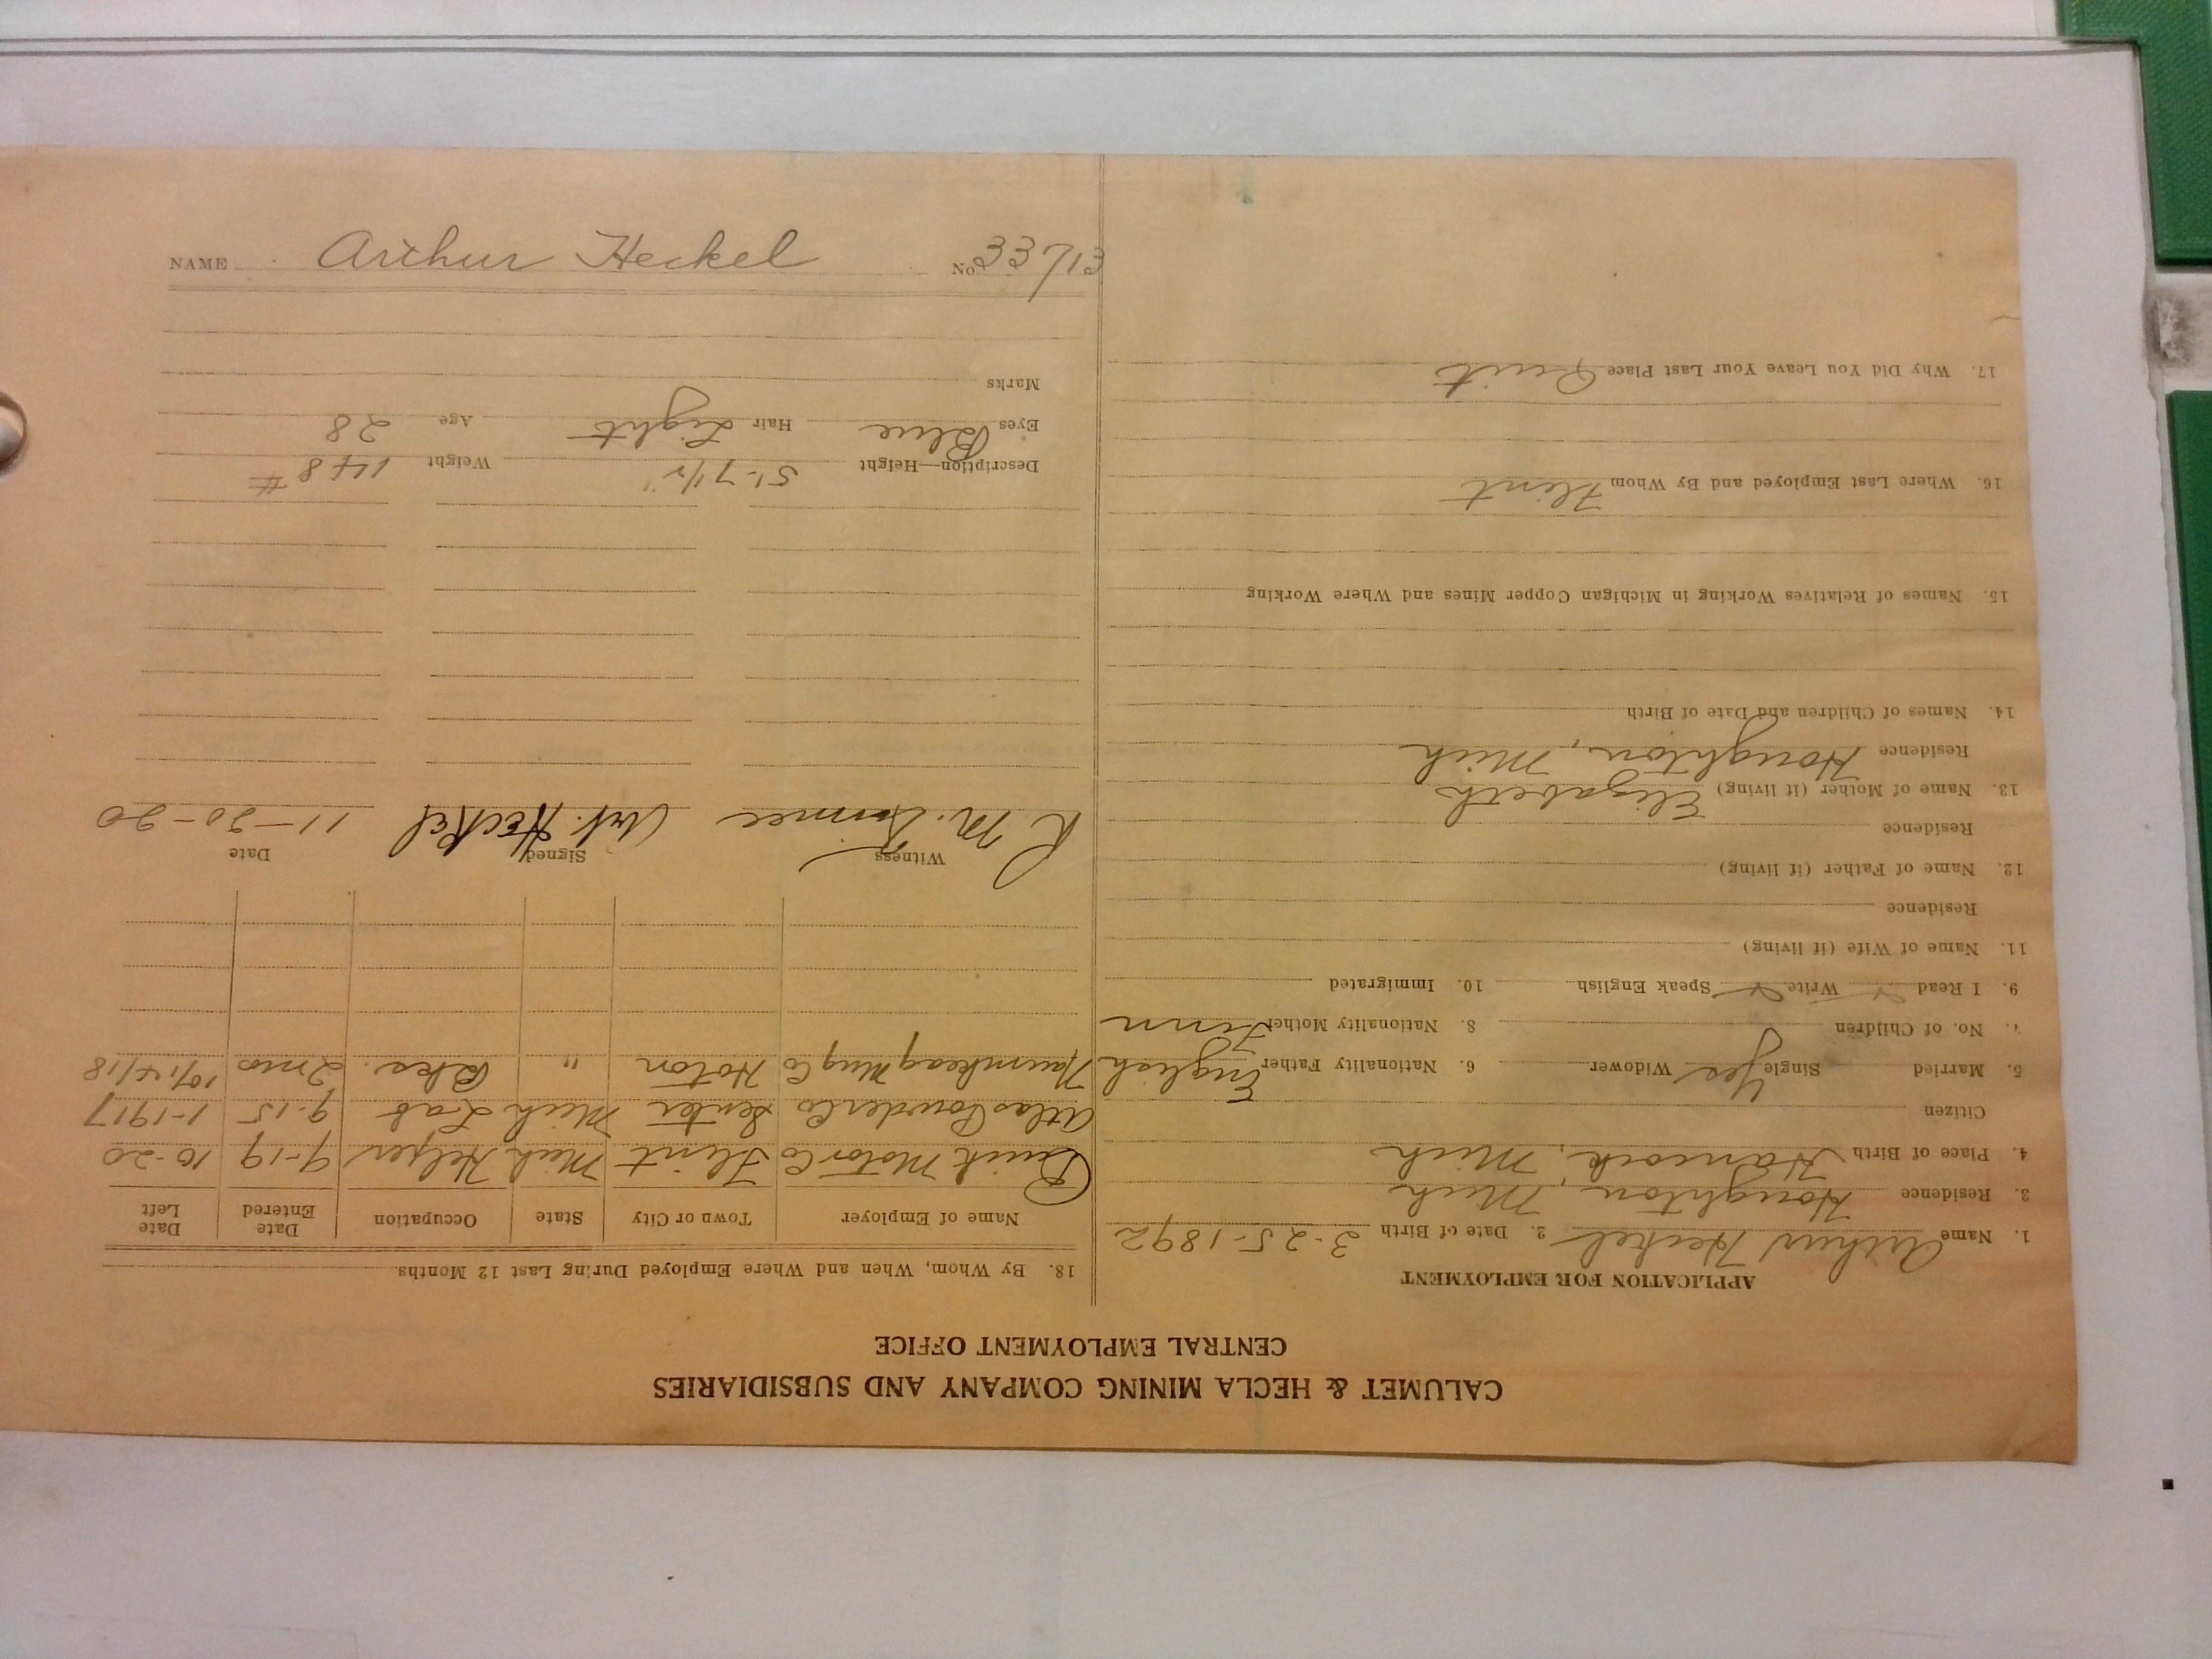 CALUMET & HECLA MINING COMPANY AND SUBSIDIARIES
CENTRAL EMPLOYMENT OFFICE
APPLICATION FOR EMPLOYMENT
1. Name Arthur Heckel 2. Date of Birth 3-25-1892
3. Residence Houghton, Mich
4. Place of Birth Hancock, Mich
Citizen
5. Married Single Yes Widower 6. Nationality Father English
7. No. of Children 8. Nationality Mother Finn
9. I Read Write Speak English 10. Immigrated
11. Name of Wife (if living)
Residence
12. Name of Father (if living)
Residence
13. Name of Mother (if living) Elizabeth
Residence Houghton, Mich
14. Names of Children and Date of Birth
15. Names of Relatives Working in Michigan Copper Mines and Where Working
16. Where Last Employed and By Whom Flint
17. Why Did You Leave Your Last Place Quit
18. By Whom, When and Where Employed During Last 12 Months
Name of Employer Town or City State Occupation Date Entered Date Left
Buick Motor Co Flint Mich Helper 9-19 10-20
Atlas Powder Co Senter Mich Lab 9-15 1-1917
Naumkeag Mng Co Hoton " 2 mos 10/14/18
Witness Signed Date
R M. Art. Heckel 11-20-20
Description—Height 5'-7 1/2" Weight 148 #
Eyes Blue Hair Light Age 28
Marks
NAME Arthur Heckel No. 33713